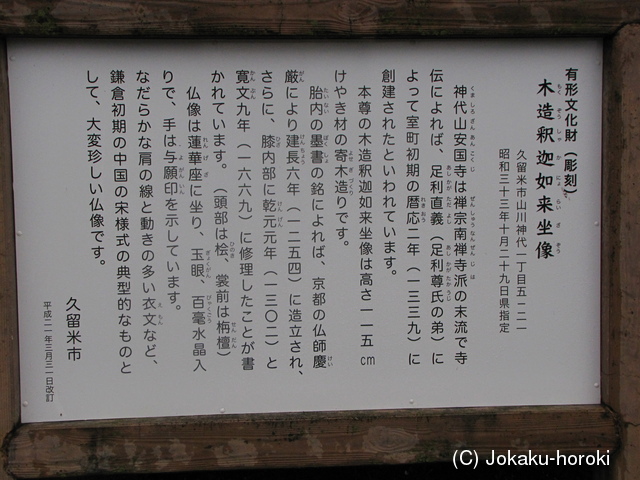 有形文化財（彫刻）
木造釈迦如来坐像
久留米市山川神代一丁目五－二一
昭和三十三年十月二十九日県指定
神代山安国寺は禅宗南禅寺派の末流で寺
伝によれば、足利直義（足利尊氏の弟）に
よって室町初期の暦応二年（一三三九）に
創建されたといわれています。
本尊の木造釈迦如来坐像は高さ一一五cm
けやき材の寄木造りです。
胎内の墨書の銘によれば、京都の仏師慶
厳により建長六年（一二五四）に造立され、
さらに、膝内部に乾元元年（一三〇二）と
寛文九年（一六六九）に修理したことが書
かれています。（頭部は桧、裳前は栴檀）
仏像は蓮華座に坐り、玉眼、百毫水晶入
りで、手は与願印を示しています。
なだらかな肩の線と動きの多い衣文など、
鎌倉初期の中国の宋様式の典型的なものと
して、大変珍しい仏像です。
久留米市
平成二一年三月三一日改訂
(C) Jokaku-horoki